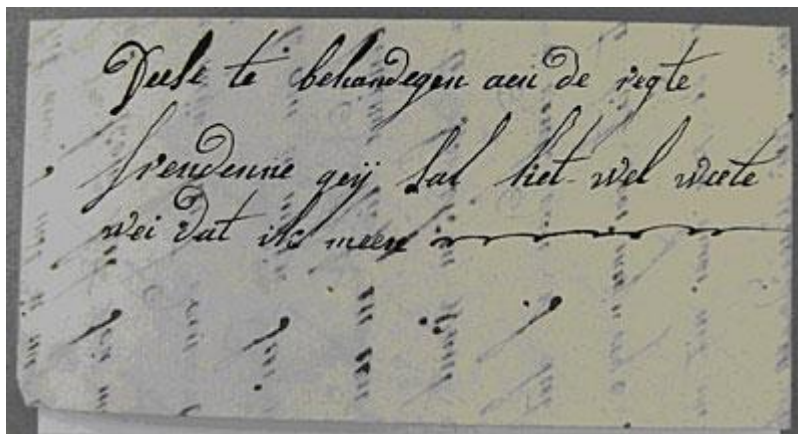 Deese te behandegen aen de regte
frendinne gey sal het wel weete
wei dat ik meen